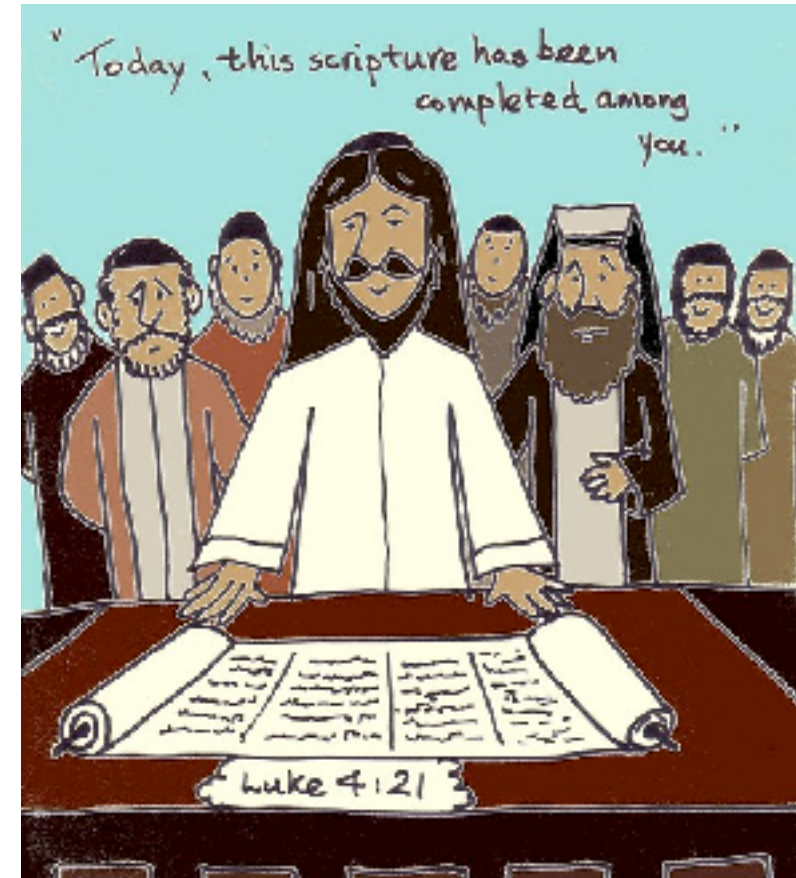 " Today, this scripture has been
completed among
you. "
Luke 4:21